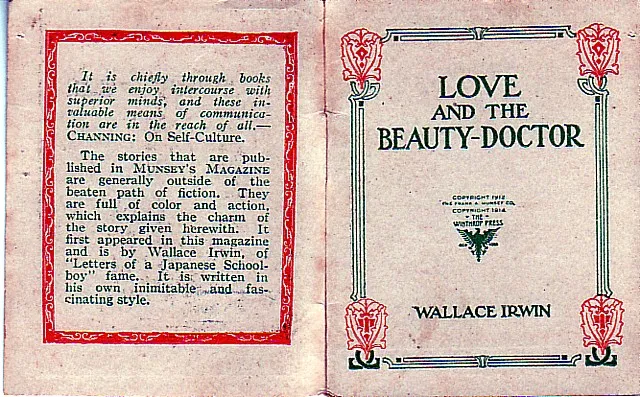 It is chiefly through books
that we enjoy intercourse with
superior minds, and these in-
valuable means of communica-
tion are in the reach of all.—
CHANNING: On Self-Culture.
The stories that are pub-
lished in MUNSEY'S MAGAZINE
are generally outside of the
beaten path of fiction. They
are full of color and action,
which explains the charm of
the story given herewith. It
first appeared in this magazine
and is by Wallace Irwin, of
"Letters of a Japanese School-
boy" fame. It is written in
his own inimitable and fas-
cinating style.
LOVE
AND THE
BEAUTY-DOCTOR
COPYRIGHT 1912
THE FRANK A. MUNSEY CO.
COPYRIGHT 1914
THE
WINTHROP PRESS
WALLACE IRWIN